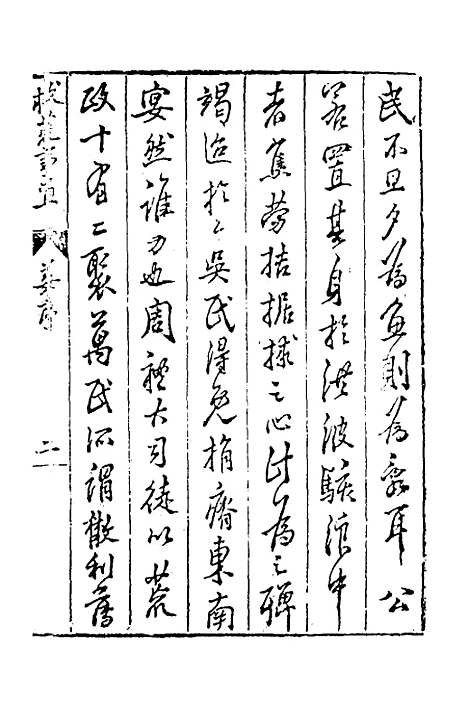 民不旦夕為魚則為耳公
若置其身於洪波駭浪中
者焦勞拮据捄之心計為之殫
竭迨於今吳民得免捐瘠東南
宴然誰力也周禮大司徒以荒
政十有二聚萬民所謂散利薄
救荒事宜 姜序 二